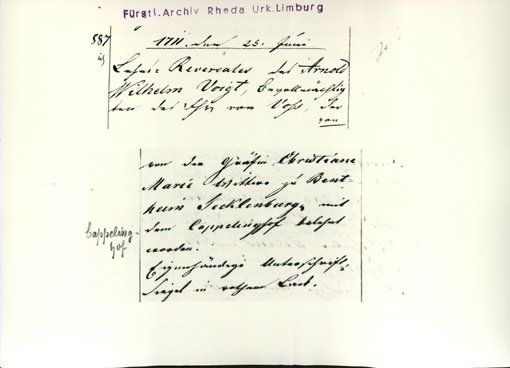 Fürstl. Archiv Rheda Urk. Limburg
587
1711. den 25. Juni
Lehns-Reversales des Arnold
Wilhelm Voigt, Bevollmächtig
ten des Fhr von Voss, der
von
von der Gräfin Christiane
Marie Wittwe zu Bent-
heim Tecklenburg, mit
dem Cappelinghof belehnt
worden.
Eigenhändige Unterschrift.
Siegel in rothem Lack.
Cappeling-
hof